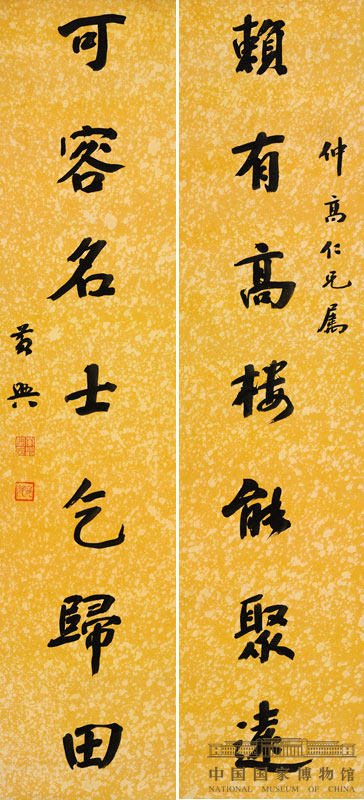 仲高仁兄屬
賴有高樓能聚遠
可容名士乞歸田
黃興
中国国家博物馆
NATIONAL MUSEUM OF CHINA